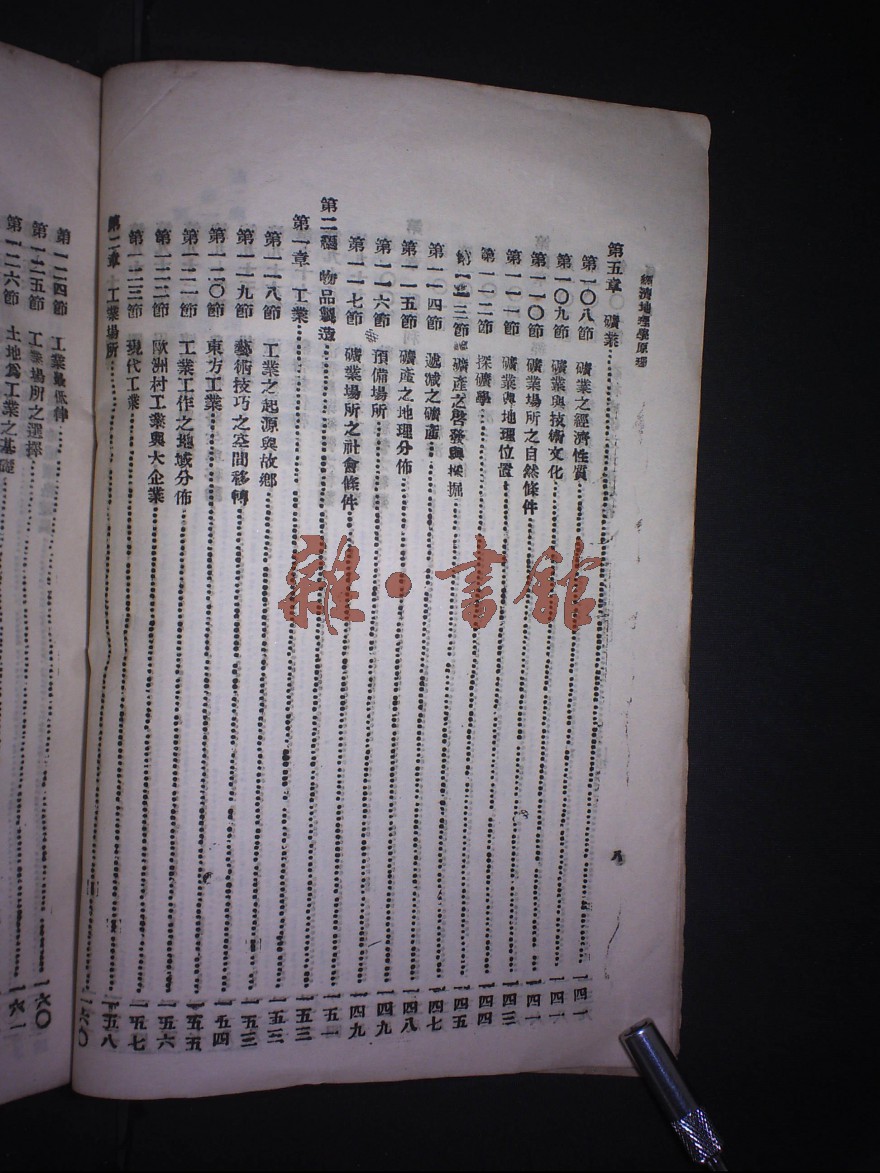 經濟地理學原理
八
第五章 礦業 一四一
第一〇八節 礦業之經濟性質 一四一
第一〇九節 礦業與技術文化 一四一
第一一〇節 礦業場所之自然條件 一四三
第一一一節 礦業與地理位置 一四四
第一一二節 探礦學 一四五
第一一三節 礦產之啓發與採掘 一四七
第一一四節 遞減之礦產 一四八
第一一五節 礦產之地理分佈 一四九
第一一六節 預備場所 一四九
第一一七節 礦業場所之社會條件 一五一
第二編 物品製造 一五三
第一章 工業 一五三
第一一八節 工業之起源與故鄉 一五三
第一一九節 藝術技巧之空間移轉 一五四
第一二〇節 東方工業 一五五
第一二一節 工業工作之地域分佈 一五六
第一二二節 歐洲村工業與大企業 一五七
第一二三節 現代工業 一五八
第二章 工業場所 一六〇
第一二四節 工業 一六〇
第一二五節 工業場所之選擇 一六一
第一二六節 土地為工業之基礎
雜·書館